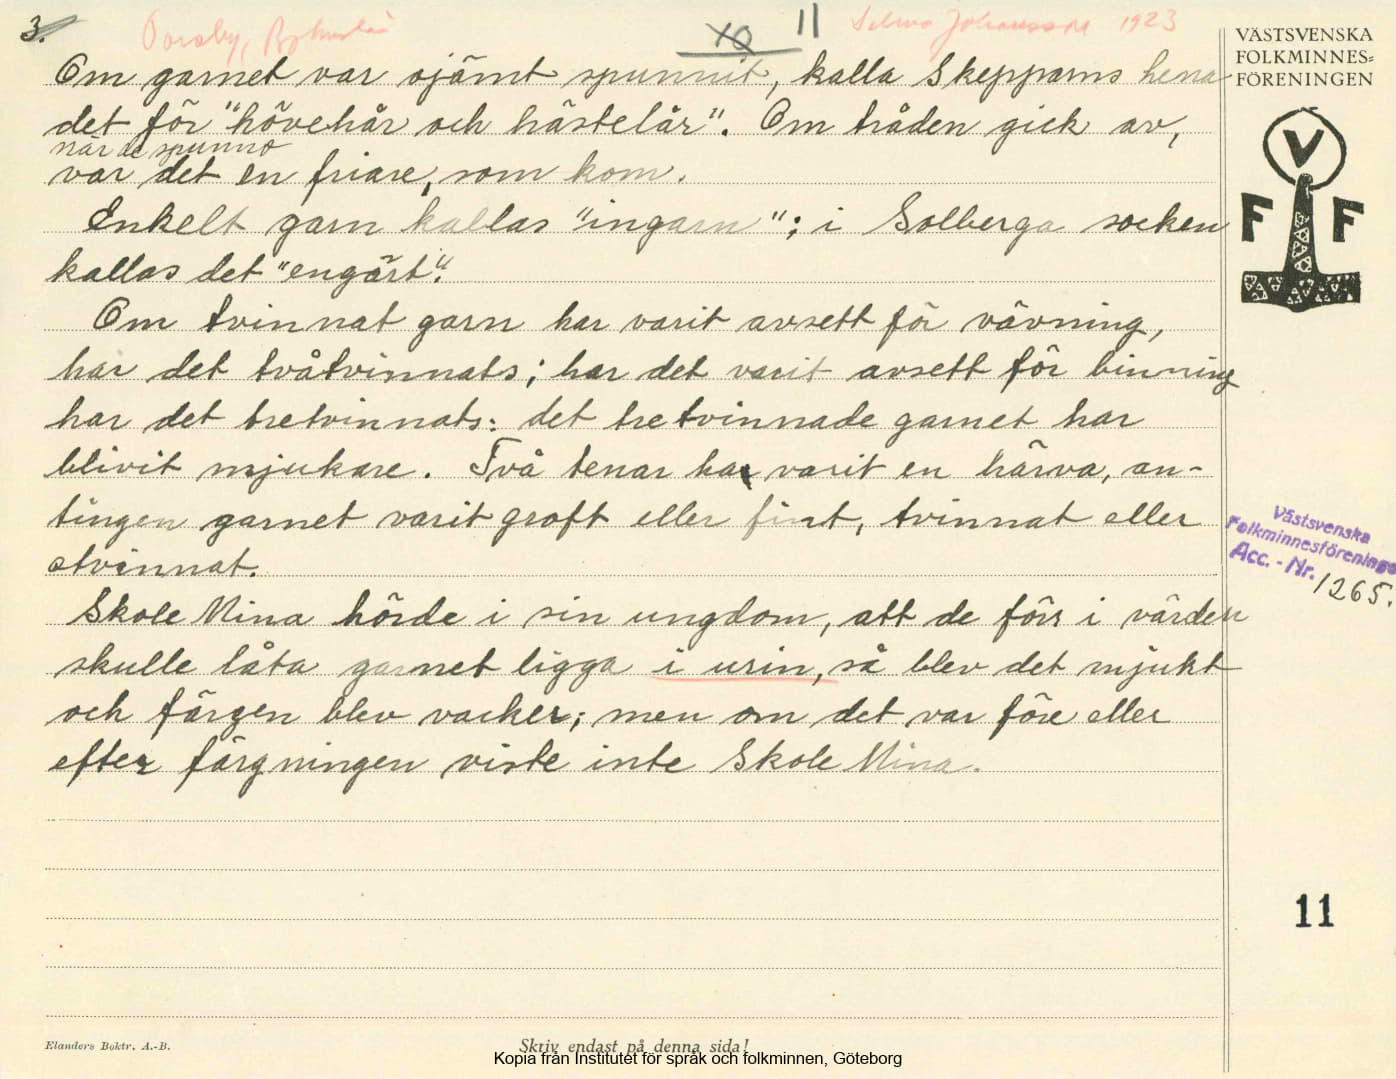 3.
Torsby, Bohuslän
10 11
Selma Johansson 1923
VÄSTSVENSKA
FOLKMINNES=
FÖRENINGEN
V
F F
Om garnet var ojämt spunnit, kalla Skeppams hena
det för "hövehår och hästelår". Om tråden gick av,
när de spunno
var det en friare, som kom.
Enkelt garn kallas "ingarn"; i Solberga socken
kallas det "engärt".
Om tvinnat garn har varit avsett för vävning,
har det tvåtvinnats; har det varit avsett för binning
har det tretvinnats: det tretvinnade garnet har
blivit mjukare. Två tenar har varit en härva, an-
tingen garnet varit groft eller fint, tvinnat eller
otvinnat.
Skole Mina hörde i sin ungdom, att de förr i värden
skulle låta garnet ligga i urin, så blev det mjukt
och färgen blev vacker; men om det var före eller
efter färgningen visste inte Skole Mina.
Västsvenska
Folkminnesförenings
Acc. - Nr. 1265.
11
Elanders Boktr. A.-B.
Skriv endast på denna sida!
Kopia från Institutet för språk och folkminnen, Göteborg